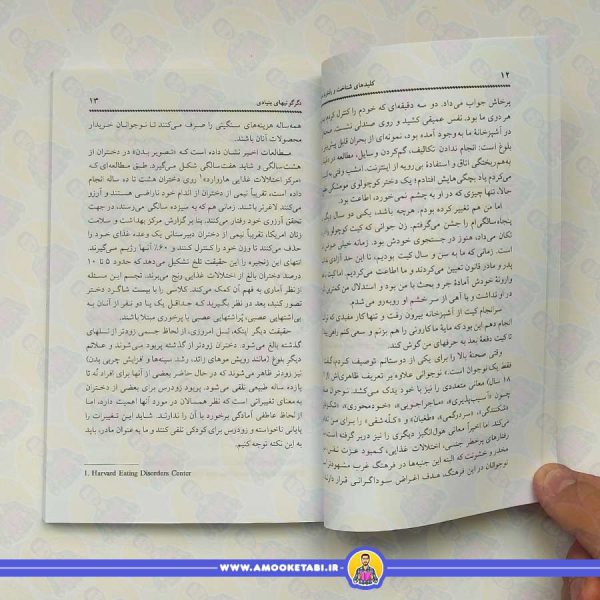 ۱۲
کلیدهای شناخت و
پرخاش جواب می‌داد. دو سه دقیقه‌ای که خودم را کنترل کردم
هر دری ما بود. نفس عمیقی کشید و روی صندلی نشست. صحنه‌ای
در آشپزخانهٔ ما به وجود آمده بود، نمونه‌ای از بحران قابل پیش‌بینی
بلوغ است: انجام ندادن تکالیف، گم‌کردن وسایل، مطالعه در
به‌هم‌ریختگی اتاق و استفادهٔ بی‌رویه از اینترنت. امشب وقتی به
کردم یاد بچگی‌هایش افتادم؛ یک دختر کوچولوی موفشنگ
حالا، تنها چیزی که در او به چشم نمی‌خورد، اطاعت بود.
اما من هم تغییر کرده بودم. هرچه باشد، یکی دو سال دیگر
پنجاه‌سالگی‌ام را جشن می‌گرفتم. زن جوانی که کیت کوچولو را
تکان می‌داد، هنوز در جستجوی خودش بود. زمانه خیلی عوض
است. زمانی که ما به سن و سال کیت بودیم، تا این حد آزادی
پدر و مادر قانون تعیین می‌کردند و ما اطاعت می‌کردیم. اما کیت،
وارونهٔ خودش آمادهٔ جر و بحث با من بود و استدلال من کمتر
در او نداشت و یا آهی از سر خشم او روبه‌رو می‌شدم.
سرانجام کیت از آشپزخانه بیرون رفت و تنها کار مفیدی که
انجام دهم این بود که مایهٔ ماکارونی را هم بزنم و سعی کنم راهی
تا کیت دفعهٔ بعد به حرفهای من گوش کند.
وقتی صحنهٔ بالا را برای یکی از دوستانم توصیف کردم،
فقط یک نوجوان است.» نوجوانی علاوه بر تعریف ظاهری‌اش
۱۸ سال) معانی متعددی را نیز با خود یدک می‌کشد. نوجوان
چون «آسیب‌پذیری»، «ماجراجویی»، «خودمحوری»،
«شکنندگی»، «سردرگمی»، «طغیان» و «کله‌شقی» را برای
می‌کند. اما اخیراً معانی هول‌انگیز دیگری را نیز دربر گرفته است:
رفتارهای پرخطر جنسی، اختلالات غذایی، کمبود عزت نفس،
مخدر و خشونت که البته این جنبه‌ها در فرهنگ غرب مشهودترند.
نوجوانان در این فرهنگ، هدف اغراض سوداگرانی قرار دارند
۱۳
دگرگونیهای بنیادی
همه‌ساله هزینه‌های سنگینی را صرف می‌کنند تا نوجوانان خریدار
محصولات آنان باشند.
مطالعات اخیر نشان داده است که «تصویر بدن» در دختران از
هشت‌سالگی و شاید هفت‌سالگی شکل می‌گیرد. طبق مطالعه‌ای که
«مرکز اختلالات غذایی هاروارد»۱ روی دختران هشت تا ده ساله انجام
داده است، تقریباً نیمی از دختران از اندام خود ناراضی هستند و آرزو
می‌کنند لاغرتر باشند. زمانی هم که به سیزده سالگی می‌رسند، در جهت
تحقق آرزوی خود رفتار می‌کنند. بنا بر گزارش مرکز بهداشت و سلامت
زنان امریکا، تقریباً نیمی از دختران دبیرستانی یک وعده غذای خود را
حذف می‌کنند تا وزن خود را کنترل کنند و ۶۰٪ آنها رژیم می‌گیرند.
انتهای این زنجیره را این حقیقت تلخ تشکیل می‌دهد که حدود ۵ تا ۱۰
درصد دختران بالغ از اختلالات غذایی رنج می‌برند. تجسم این مسئله
از نظر آماری به فهم آن کمک می‌کند. کلاسی را با بیست شاگرد دختر
تصور کنید، بعد در نظر بگیرید که حداقل یک یا دو نفر از آنان به
بی‌اشتهایی عصبی، پُراشتهایی عصبی یا پرخوری مبتلا باشند.
حقیقت دیگر اینکه، نسل امروزی، از لحاظ جسمی زودتر از نسلهای
گذشته بالغ می‌شود. دختران زودتر از گذشته پریود می‌شوند و علائم
دیگر بلوغ (مانند رویش موهای زائد، رشد سینه‌ها و افزایش چربی بدن)
نیز زودتر ظاهر می‌شوند که در حال حاضر بعضی از آنها برای افراد نُه تا
یازده ساله طبیعی تلقی می‌شود. پریود زودرس برای بعضی از دختران
به‌معنای تغییراتی است که نظر همسالان در مورد آنها اهمیت دارد، اما
از لحاظ عاطفی آمادگی برخورد با آن را ندارند. شاید این تغییرات را
پایانی ناخواسته و زودرس برای کودکی تلقی کنند و ما به عنوان مادر، باید
به این نکته توجه کنیم.
1. Harvard Eating Disorders Center
WWW.AMOOKETABI.IR